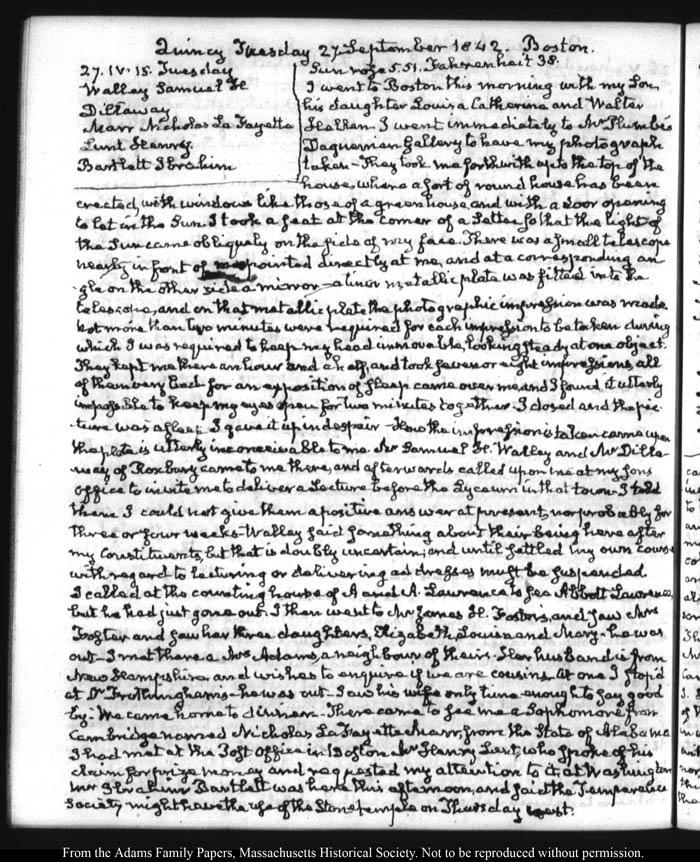 Quincy Tuesday 27. September 1842. Boston.
27. IV. 15. Tuesday
Walley Samuel H
Dillaway
Marr Nicholas La Fayette
Lunt Henry.
Bartlett Ibrahim
Sun rose 5.51. Fahrenheit 38.
I went to Boston this morning with my Son,
his daughter Louisa Catherine and Walter
Hallen. I went immediately to Mr Plumbe's
Daguerrian Gallery to have my photograph
taken— They took me forthwith up to the top of the
house, where a sort of round house has been
erected, with windows like those of a green house, and with a door opening
to let in the Sun. I took a seat at the corner of a Settee so that the light of
the Sun came obliquely on the side of my face. There was a small telescope
nearly in front of me pointed directly at me, and at a corresponding an
gle on the other side a mirror— a linor metallic plate was fitted into the
telescope, and on that metallic plate the photographic impression was made
not more than two minutes were required for each impression to be taken during
which I was required to keep my head immovable, looking steady at one object.
They kept me there an hour and a half, and took seven or eight impressions, all
of them very bad, for an exposition of sleep came over me and I found it utterly
impossible to keep my eyes open for two minutes together. I closed and the pic-
ture was asleep. I gave it up in despair— How the impression is taken came upon
the plate is utterly inconceivable to me. Mr Samuel H. Walley and Mr Dilla-
way of Roxbury came to me there, and afterwards called upon me at my Sons
office to invite me to deliver a Lecture before the Lyceum in that town— I told
them I could not give them a positive answer at present, nor probably for
three or four weeks— Walley said something about their being here after
my Constituents, but that is doubly uncertain; and until settled my own course
with regard to lecturing or delivering addresses must be suspended.
I called at the counting house of A and A. Lawrence to see Abbott Lawrence,
but he had just gone out. I then went to Mr James H. Foster's, and saw Mrs
Foster and saw her three daughters, Elizabeth, Louisa and Mary— he was
out— I met there a Mrs Adams, a neighbour of theirs. Her husband is from
New Hampshire and wishes to enquire if we are cousins. At one I stop'd
at Dr Frothingham's— he was out— I saw his wife only time enough to say good
by— We came home to dinner. There came to see me a Sophomore from
Cambridge named Nicholas La Fayette Marr, from the State of Alabama
I had met at the Post Office in Boston Mr Henry Lunt, who spoke of his
claim for prize money and requested my attention to it, at Washington
Mr Ibrahim Bartlett was here this afternoon, and said the Temperance
Society might have the use of the Stone temple on Thursday next.
From the Adams Family Papers, Massachusetts Historical Society. Not to be reproduced without permission.